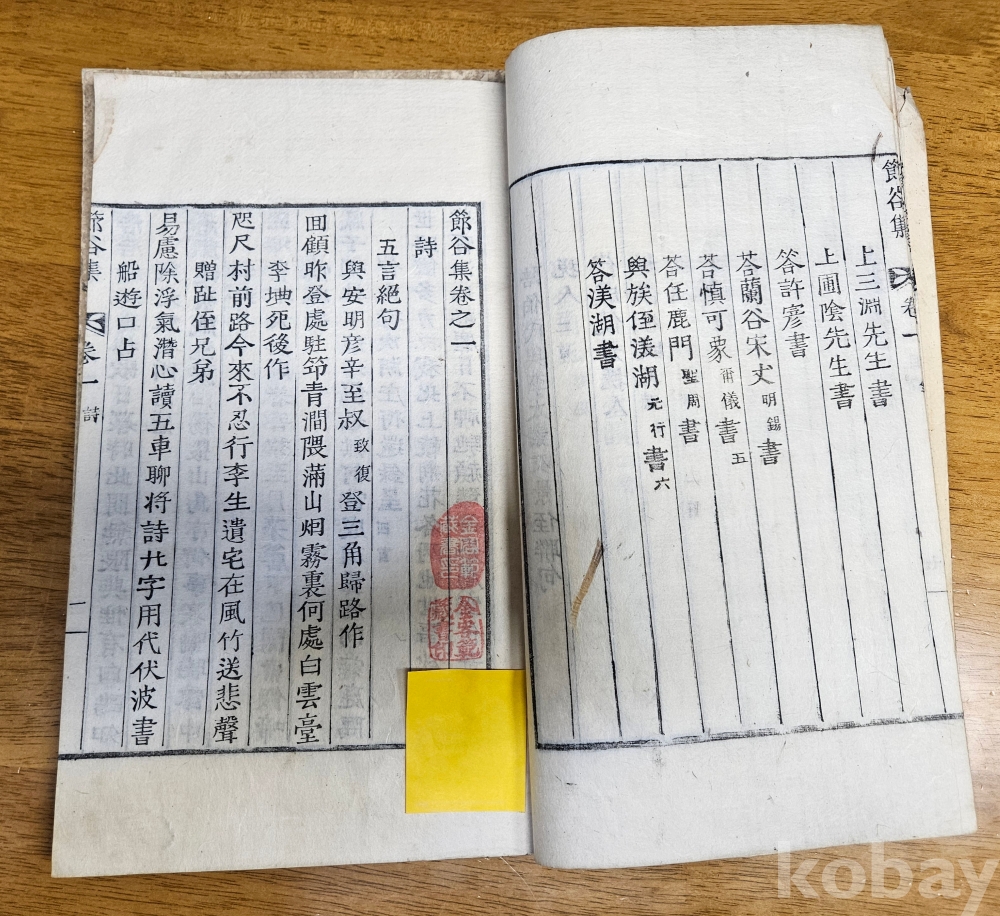 節谷集
卷一
上三淵先生書
上圃陰先生書
答許彦書
答蘭谷宋丈明錫書
答愼可象爾儀書五
答任鹿門聖周書
與族侄渼湖元行書六
答渼湖書
節谷集卷之一
詩
五言絶句
與安明彦辛至叔致復登三角歸路作
回顧昨登處駐笻靑澗隈滿山烟霧裏何處白雲臺
李㙉死後作
咫尺村前路今來不忍行李生遺宅在風竹送悲聲
贈趾侄兄弟
易慮除浮氣潛心讀五車聊將詩廿字用代伏波書
船遊口占
節谷集
卷一
詩
一
kobay